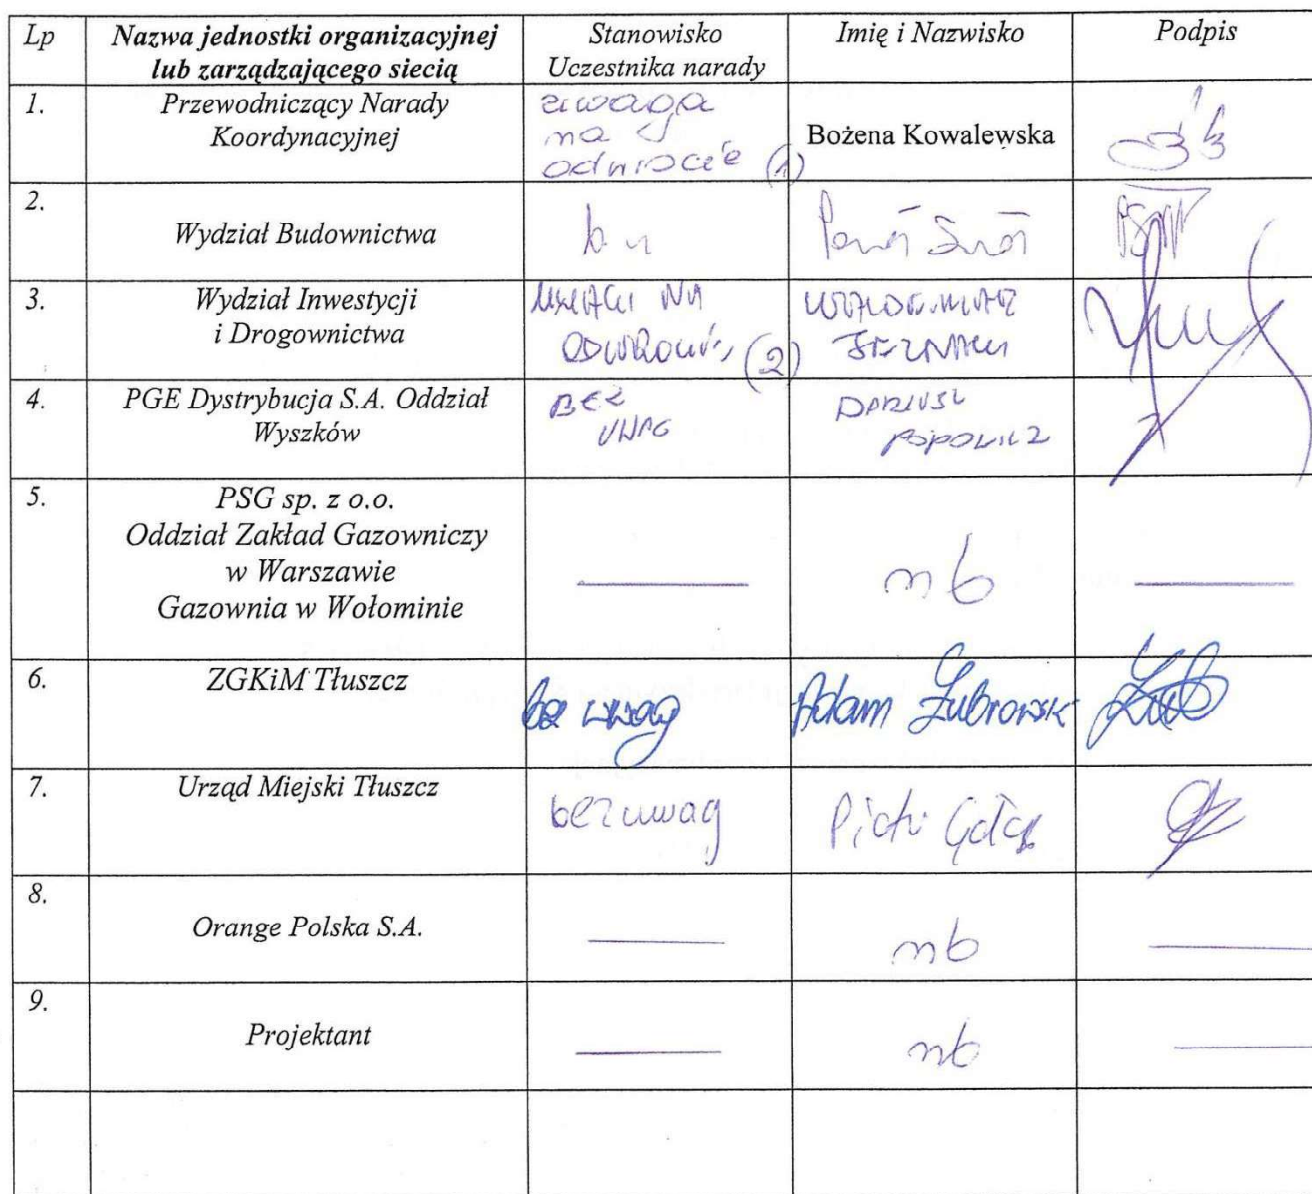 Lp Nazwa jednostki organizacyjnej lub zarządzającego siecią Stanowisko Uczestnika narady Imię i Nazwisko Podpis
1. Przewodniczący Narady
Koordynacyjnej
uwaga
na
odwrocie (1)
Bożena Kowalewska
2.
Wydział Budownictwa
b. u
3. Wydział Inwestycji
i Drogownictwa
UWAGI NA
(2)
4. PGE Dystrybucja S.A. Oddział
Wyszków
BEZ
UWAG
DARIUSZ
5. PSG sp. z o.o.
Oddział Zakład Gazowniczy
w Warszawie
Gazownia w Wołominie
nb
6. ZGKiM Tłuszcz
bez uwag
Adam Żubrowski
7. Urząd Miejski Tłuszcz
bez uwag
Piotr
8.
Orange Polska S.A.
nb
9.
Projektant
nb